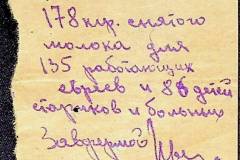 178 клр. снятого
молока для
135 работающих
евреев и 85 детей
стариков и больных
Завфермой